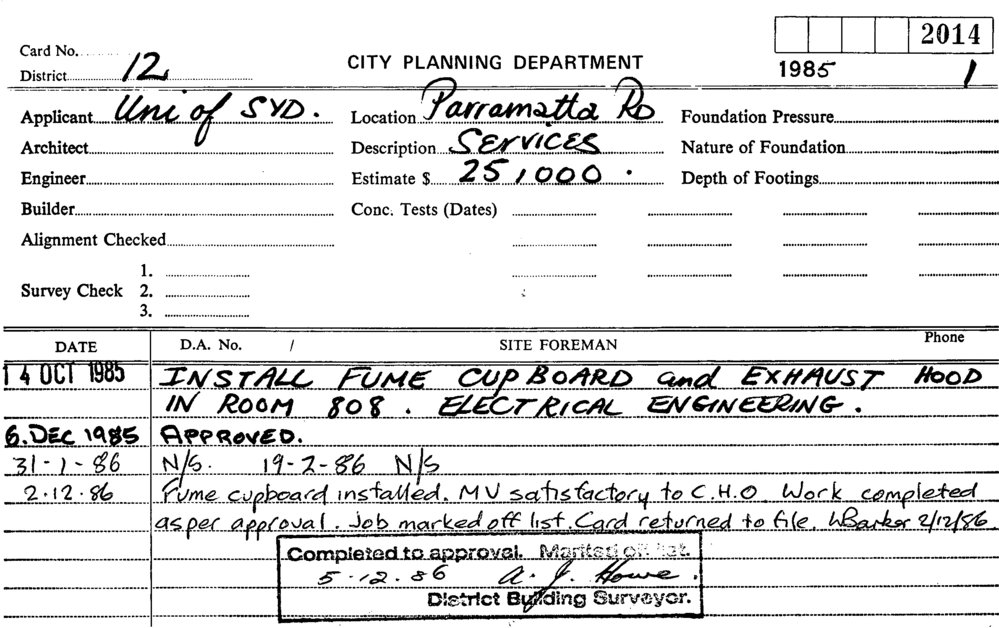 2014
Card No.
District 12
CITY PLANNING DEPARTMENT
1985 1
Applicant Uni of SYD.
Location Parramatta RD
Foundation Pressure
Architect
Description SERVICES
Nature of Foundation
Engineer
Estimate $ 25,000.
Depth of Footings
Builder
Conc. Tests (Dates)
Alignment Checked
1.
Survey Check 2.
3.
DATE D.A. No. / SITE FOREMAN Phone
14 OCT 1985 INSTALL FUME CUPBOARD and EXHAUST HOOD
IN ROOM 808. ELECTRICAL ENGINEERING.
6. DEC 1985 APPROVED.
31-1-86 N/S. 19-2-86 N/S
2.12.86 Fume cupboard installed. MV satisfactory to C.H.O. Work completed
as per approval. Job marked off list. Card returned to file. WBarker 2/12/86
Completed to approval. Marked off list.
5.12.86 A. J. Howe.
District Building Surveyor.